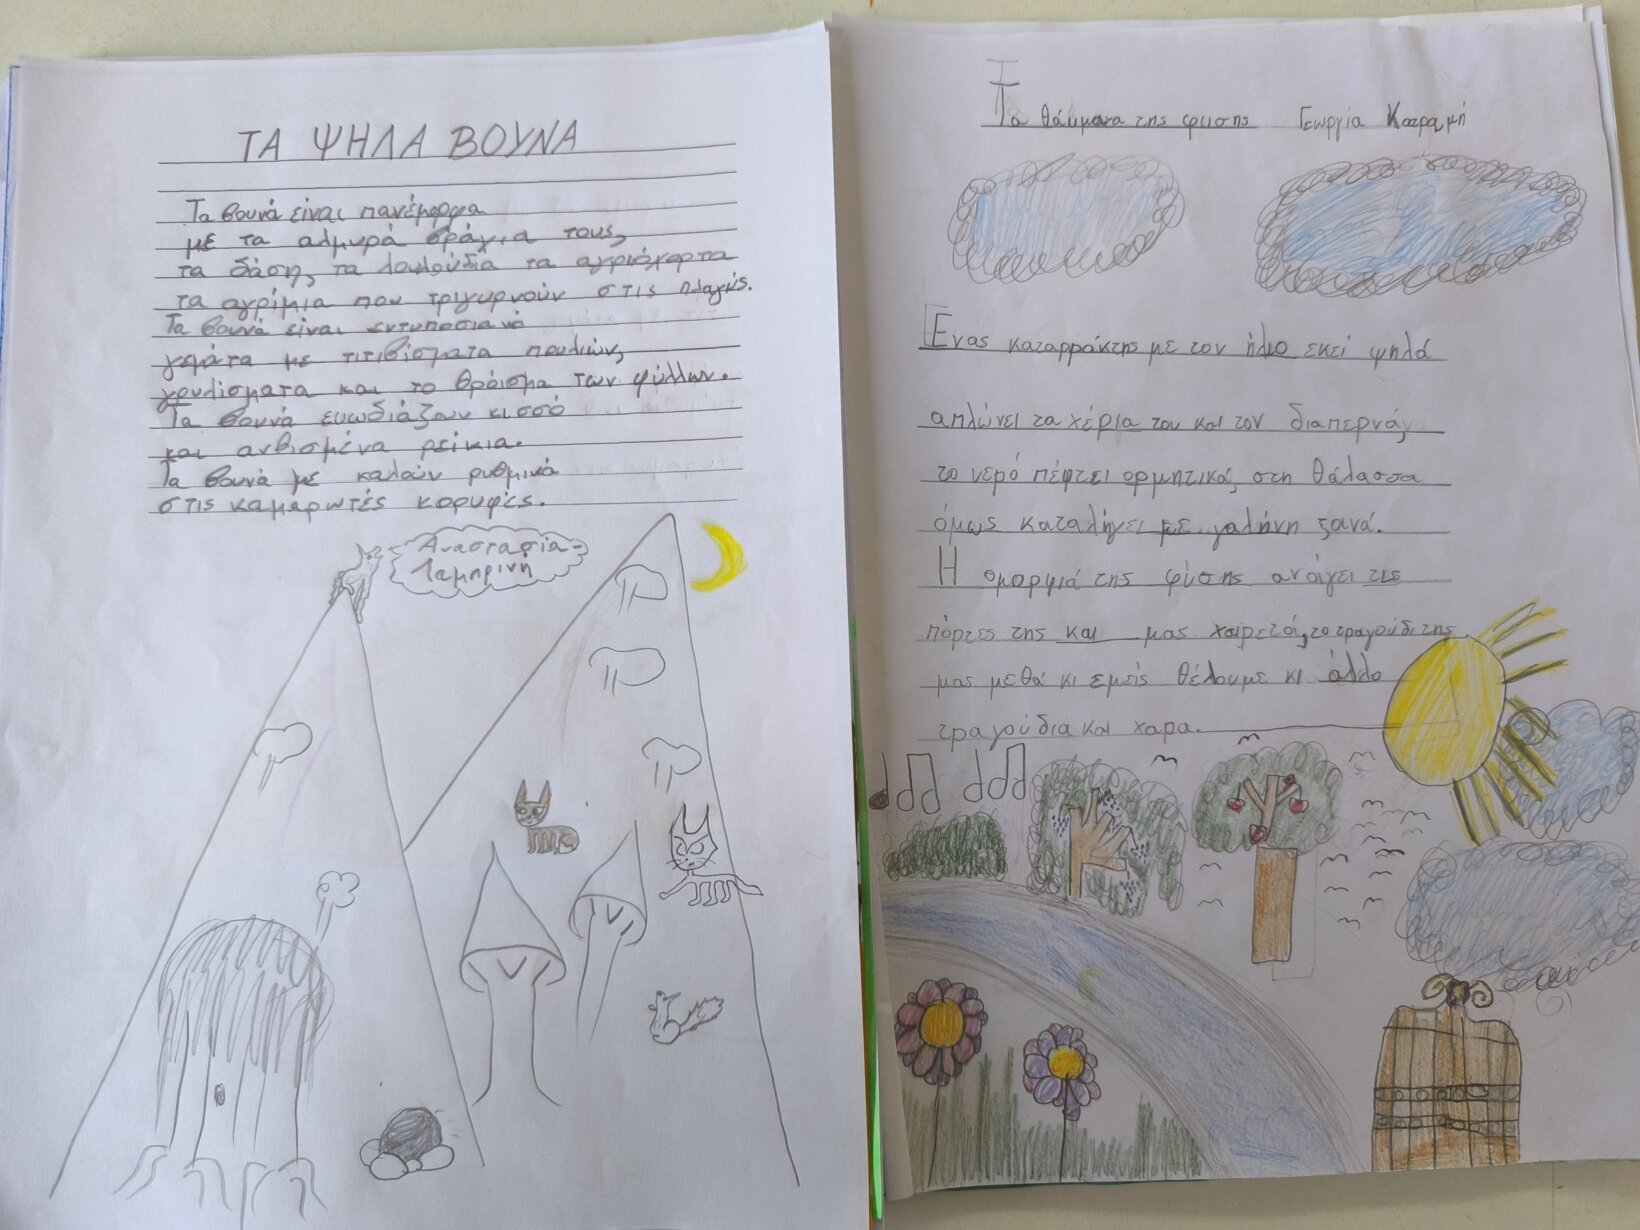 ΤΑ ΨΗΛΑ ΒΟΥΝΑ
Τα βουνά είναι πανέμορφα
με τα αλμυρά βράχια τους,
τα δάση, τα λουλούδια τα αγριόχορτα
τα αγρίμια που τριγυρνούν στις πλαγιές.
Τα βουνά είναι εντυπωσιακά
γεμάτα με τιτιβίσματα πουλιών,
γρυλίσματα και το θρόισμα των φύλλων.
Τα βουνά ευωδιάζουν κισσό
και ανθισμένα ρείκια.
Τα βουνά με καλούν ρυθμικά
στις καμαρωτές κορυφές.
Αναστασία-
Λαμπρινή
Τα θάυματα της φυσης Γεωργία Κατραμή
Ενας καταρράκτης με τον ήλιο εκεί ψηλά
απλώνει τα χέρια του και τον διαπερνάς
το νερό πέφτει ορμητικά, στη θάλασσα
όμως καταλήγει με γαλήνη ξανά.
Η ομορφιά της φύσης ανοίγει τις
πόρτες της και μας χαιρετάι, το τραγούδι της
μας μεθά κι εμείς θέλουμε κι άλλο
τραγούδια και χαρα.